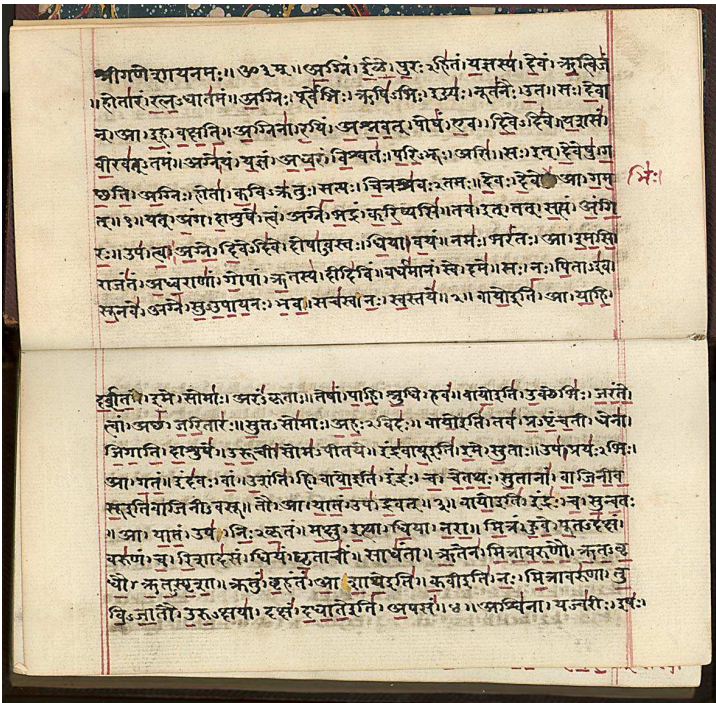 श्रीगणेशायनमः॥ॐ३म्॥अग्निं।ईळे।पुरःऽहितं।यज्ञस्य।देवं।ऋत्विजं
॥होतारं।रत्नऽधातमं॥अग्निः।पूर्वेभिः।ऋषिऽभिः।ईड्यः।नूतनैः।उत॥सः।देवा
न्।आ।इह।वक्षति॥अग्निना।रयिं।अश्नवत्।पोषं।एव।दिवेऽदिवे॥यशसं।
वीरवत्ऽतमं॥अग्नेयं।यज्ञं।अध्वरं।विश्वतः।परिऽभूः।असि॥सः।इत्।देवेषु।ग
च्छति।अग्निः।होता।कविऽक्रतुः।सत्यः।चित्रश्रवःऽतमः॥देवः।देवे आ।गम
भिः।
त्॥१॥यत्।अंग।दाशुषे।त्वं।अग्ने।भद्रं।करिष्यसि॥तव।इत्।तत्।सत्यं।अंगि
रः॥उप।त्वा।अग्ने।दिवेऽदिवे।दोषाऽवस्तः।धिया।वयं॥नमः।भरंतः।आ।इमसि।
राजंतं।अध्वराणां।गोपां।ऋतस्य।दीदिविं॥वर्धमानं।स्वे।दमे॥सः।नः।पिताऽइव।
सूनवे।अग्ने।सुऽउपायनः।भव।सचस्व।नः।स्वस्तये॥२॥वायोइति।आ।याहि।
दर्शत।इमे।सोमाः।अरंऽकृताः॥तेषां।पाहि।श्रुधि।हवं॥वायोइति।उक्थेभिः।जरंते।
त्वां।अच्छ।जरितारः॥सुतऽसोमाः।अहःऽविदः॥वायोइति।तव।प्रऽपृंचती।धेना।
जिगाति।दाशुषे॥उरूची।सोमऽपीतये॥इंद्रवायूइति।इमे।सुताः॥उप।प्रयःऽभिः।
आ।गतं॥इंदवः।वां।उशंति।हि॥वायोइति।इंद्रः।च।चेतथः।सुतानां।वाजिनीव
सूइतिवाजिनीऽवसू॥तौ।आ।यातं।उप।द्रवत्॥३॥वायोइति।इंद्रः।च।सुन्वतः
॥आ।यातं।उप।निःऽकृतं॥मक्षु।इत्था।धिया।नरा॥मित्रं।हुवे।पूतऽदक्षं।
वरुणं।च।रिशादसं॥धियं।घृताचीं।साधंता॥ऋतेन।मित्रावरुणौ।ऋतऽवृ
धौ।ऋतऽस्पृशा॥क्रतुं।बृहंतं।आशाथेइति॥कवीइति।नः।मित्रावरुणा।तु
विऽजातौ।उरुऽक्षया॥दक्षं।दधातेइति।अपसं॥४॥अश्विना।यज्वरीः।इषः।